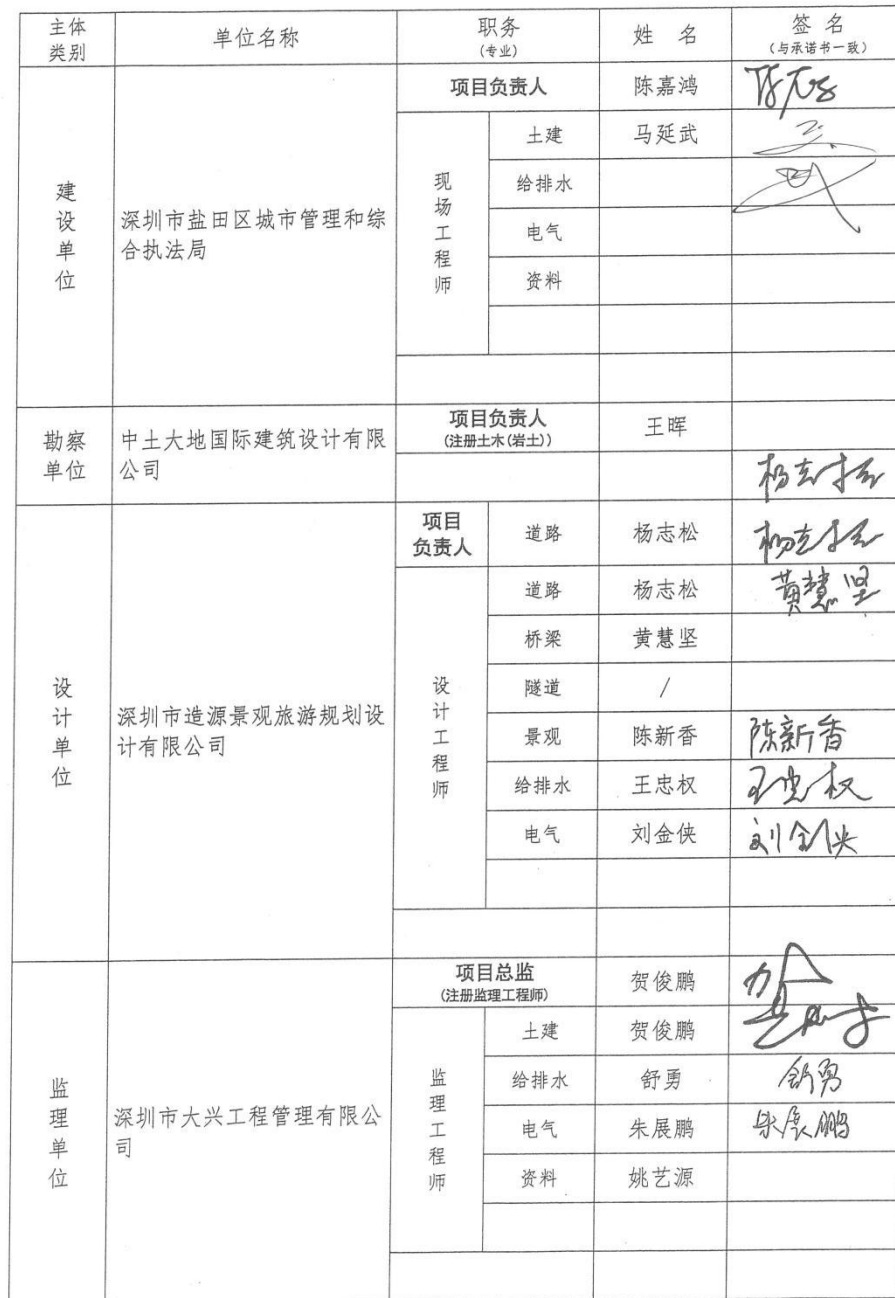 主体类别 单位名称 职务（专业） 姓 名 签 名（与承诺书一致）
建设单位 深圳市盐田区城市管理和综合执法局
项目负责人 陈嘉鸿
现场工程师 土建 马延武
给排水
电气
资料
勘察单位 中土大地国际建筑设计有限公司
项目负责人（注册土木(岩土)） 王晖
杨志松
设计单位 深圳市造源景观旅游规划设计有限公司
项目负责人 道路 杨志松 杨志松
设计工程师 道路 杨志松 黄慧坚
桥梁 黄慧坚
隧道 /
景观 陈新香 陈新香
给排水 王忠权 王忠权
电气 刘金侠 刘金侠
监理单位 深圳市大兴工程管理有限公司
项目总监（注册监理工程师） 贺俊鹏
监理工程师 土建 贺俊鹏
给排水 舒勇 舒勇
电气 朱展鹏 朱展鹏
资料 姚艺源